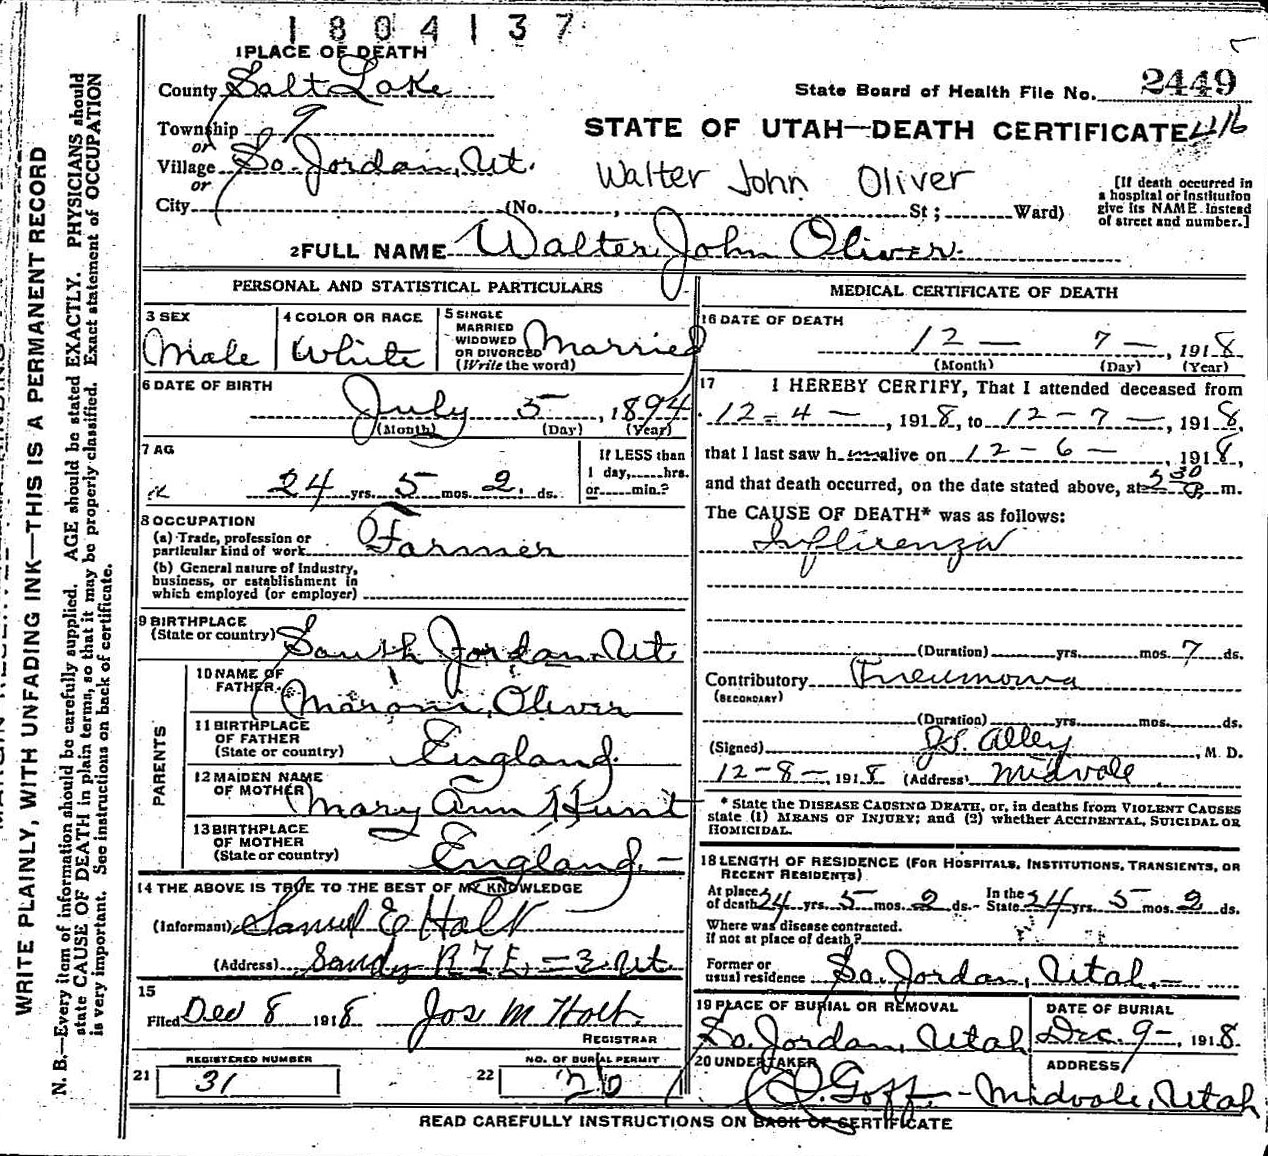 1804137
1 PLACE OF DEATH
County Salt Lake
State Board of Health File No. 2449
Township 9
or
STATE OF UTAH—DEATH CERTIFICATE 416
Village So. Jordan, Ut.
or
Walter John Oliver
[If death occurred in
a hospital or institution
give its NAME instead
of street and number.]
City (No. , St ; Ward)
2 FULL NAME Walter John Oliver.
PERSONAL AND STATISTICAL PARTICULARS
3 SEX
Male
4 COLOR OR RACE
White
5 SINGLE
MARRIED
WIDOWED
OR DIVORCED
(Write the word)
Married
6 DATE OF BIRTH
July 5, 1894
(Month) (Day) (Year)
7 AG
24 yrs. 5 mos. 2 ds.
If LESS than
1 day, hrs.
or min.?
8 OCCUPATION
(a) Trade, profession or
particular kind of work Farmer
(b) General nature of Industry,
business, or establishment in
which employed (or employer)
9 BIRTHPLACE
(State or country) South Jordan, Ut.
PARENTS
10 NAME OF
FATHER Maroni Oliver
11 BIRTHPLACE
OF FATHER
(State or country) England.
12 MAIDEN NAME
OF MOTHER Mary Ann Hunt
13 BIRTHPLACE
OF MOTHER
(State or country) England. —
14 THE ABOVE IS TRUE TO THE BEST OF MY KNOWLEDGE
(Informant) Samuel E Holt
(Address) Sandy R.F.D. — 3 Ut.
15
Filed Dec 8 1918 Jos M Holt.
REGISTRAR
21 REGISTERED NUMBER
31
22 NO. OF BURIAL PERMIT
26
MEDICAL CERTIFICATE OF DEATH
16 DATE OF DEATH
12 — 7 —, 1918
(Month) (Day) (Year)
17 I HEREBY CERTIFY, That I attended deceased from
12 - 4 —, 1918, to 12 - 7 —, 1918,
that I last saw him alive on 12 - 6 —, 1918,
and that death occurred, on the date stated above, at 5 30 m.
The CAUSE OF DEATH* was as follows:
Influenza
(Duration) yrs. mos. 7 ds.
Contributory Pneumonia
(SECONDARY)
(Duration) yrs. mos. ds.
(Signed) Alley, M. D.
12-8-, 1918 (Address) Midvale
* State the DISEASE CAUSING DEATH, or, in deaths from VIOLENT CAUSES
state (1) MEANS OF INJURY; and (2) whether ACCIDENTAL, SUICIDAL OR
HOMICIDAL.
18 LENGTH OF RESIDENCE (FOR HOSPITALS, INSTITUTIONS, TRANSIENTS, OR
RECENT RESIDENTS)
At place
of death 24 yrs. 5 mos. 2 ds.
In the
State 24 yrs. 5 mos. 2 ds.
Where was disease contracted.
If not at place of death?
Former or
usual residence So. Jordan, Utah. —
19 PLACE OF BURIAL OR REMOVAL
So. Jordan, Utah
DATE OF BURIAL
Dec. 9 -, 1918.
20 UNDERTAKER
Goff. - Midvale, Utah
ADDRESS
READ CAREFULLY INSTRUCTIONS ON BACK OF CERTIFICATE
WRITE PLAINLY, WITH UNFADING INK—THIS IS A PERMANENT RECORD
N. B.—Every item of information should be carefully supplied. AGE should be stated EXACTLY. PHYSICIANS should
state CAUSE OF DEATH in plain terms, so that it may be properly classified. Exact statement of OCCUPATION
is very important. See instructions on back of certificate.